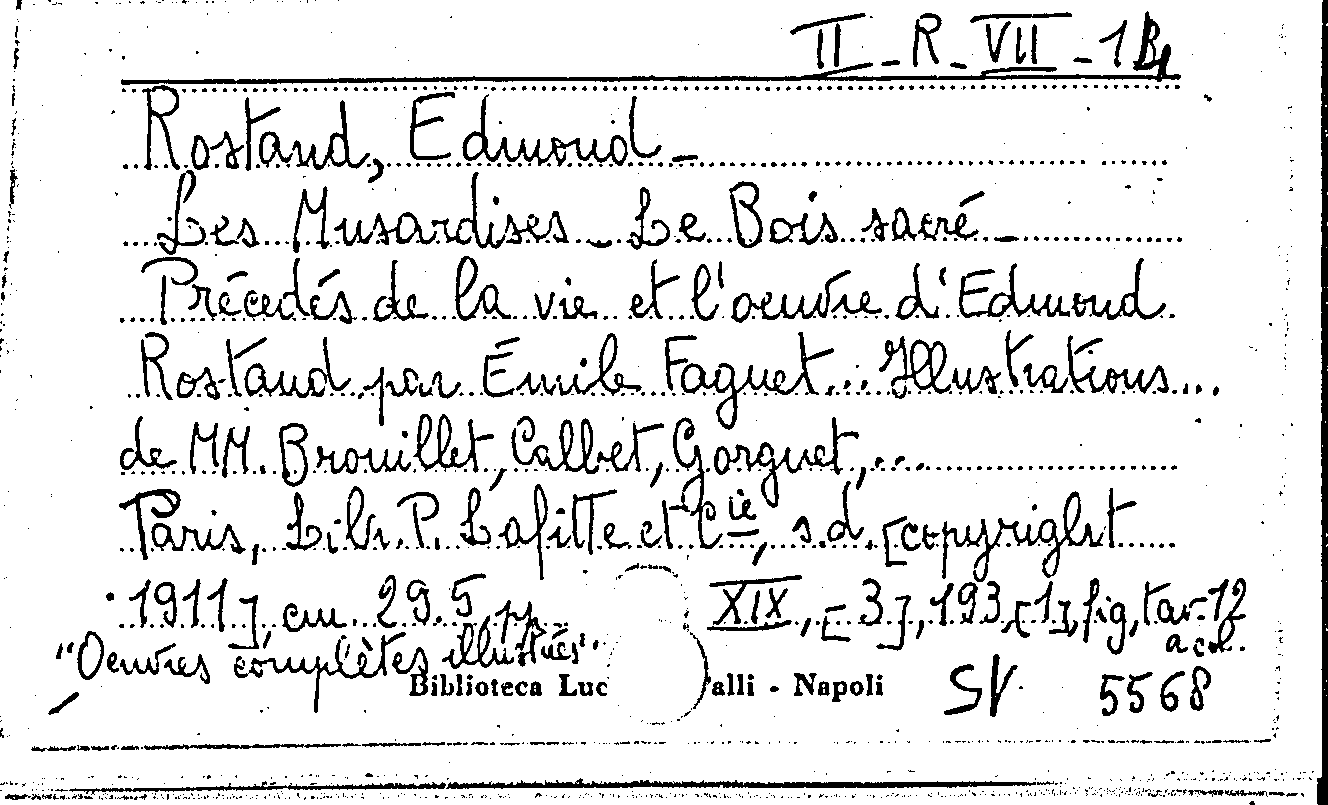 II - R - VII - 1 B4
Rostand, Edmond -
Les Musardises - Le Bois sacré -
Précédés de la vie et l'oeuvre d'Edmond
Rostand par Émile Faguet... Illustrations...
de MM. Brouillet, Calbet, Gorguet,...
Paris, Libr. P. Lafitte et Cie, s.d. [copyright
1911], cm. 29.5, pp. XIX, [3], 193, [1], fig, tav. 12
a col.
"Oeuvres complètes illustrées".
Biblioteca Luc alli - Napoli
SV 5568